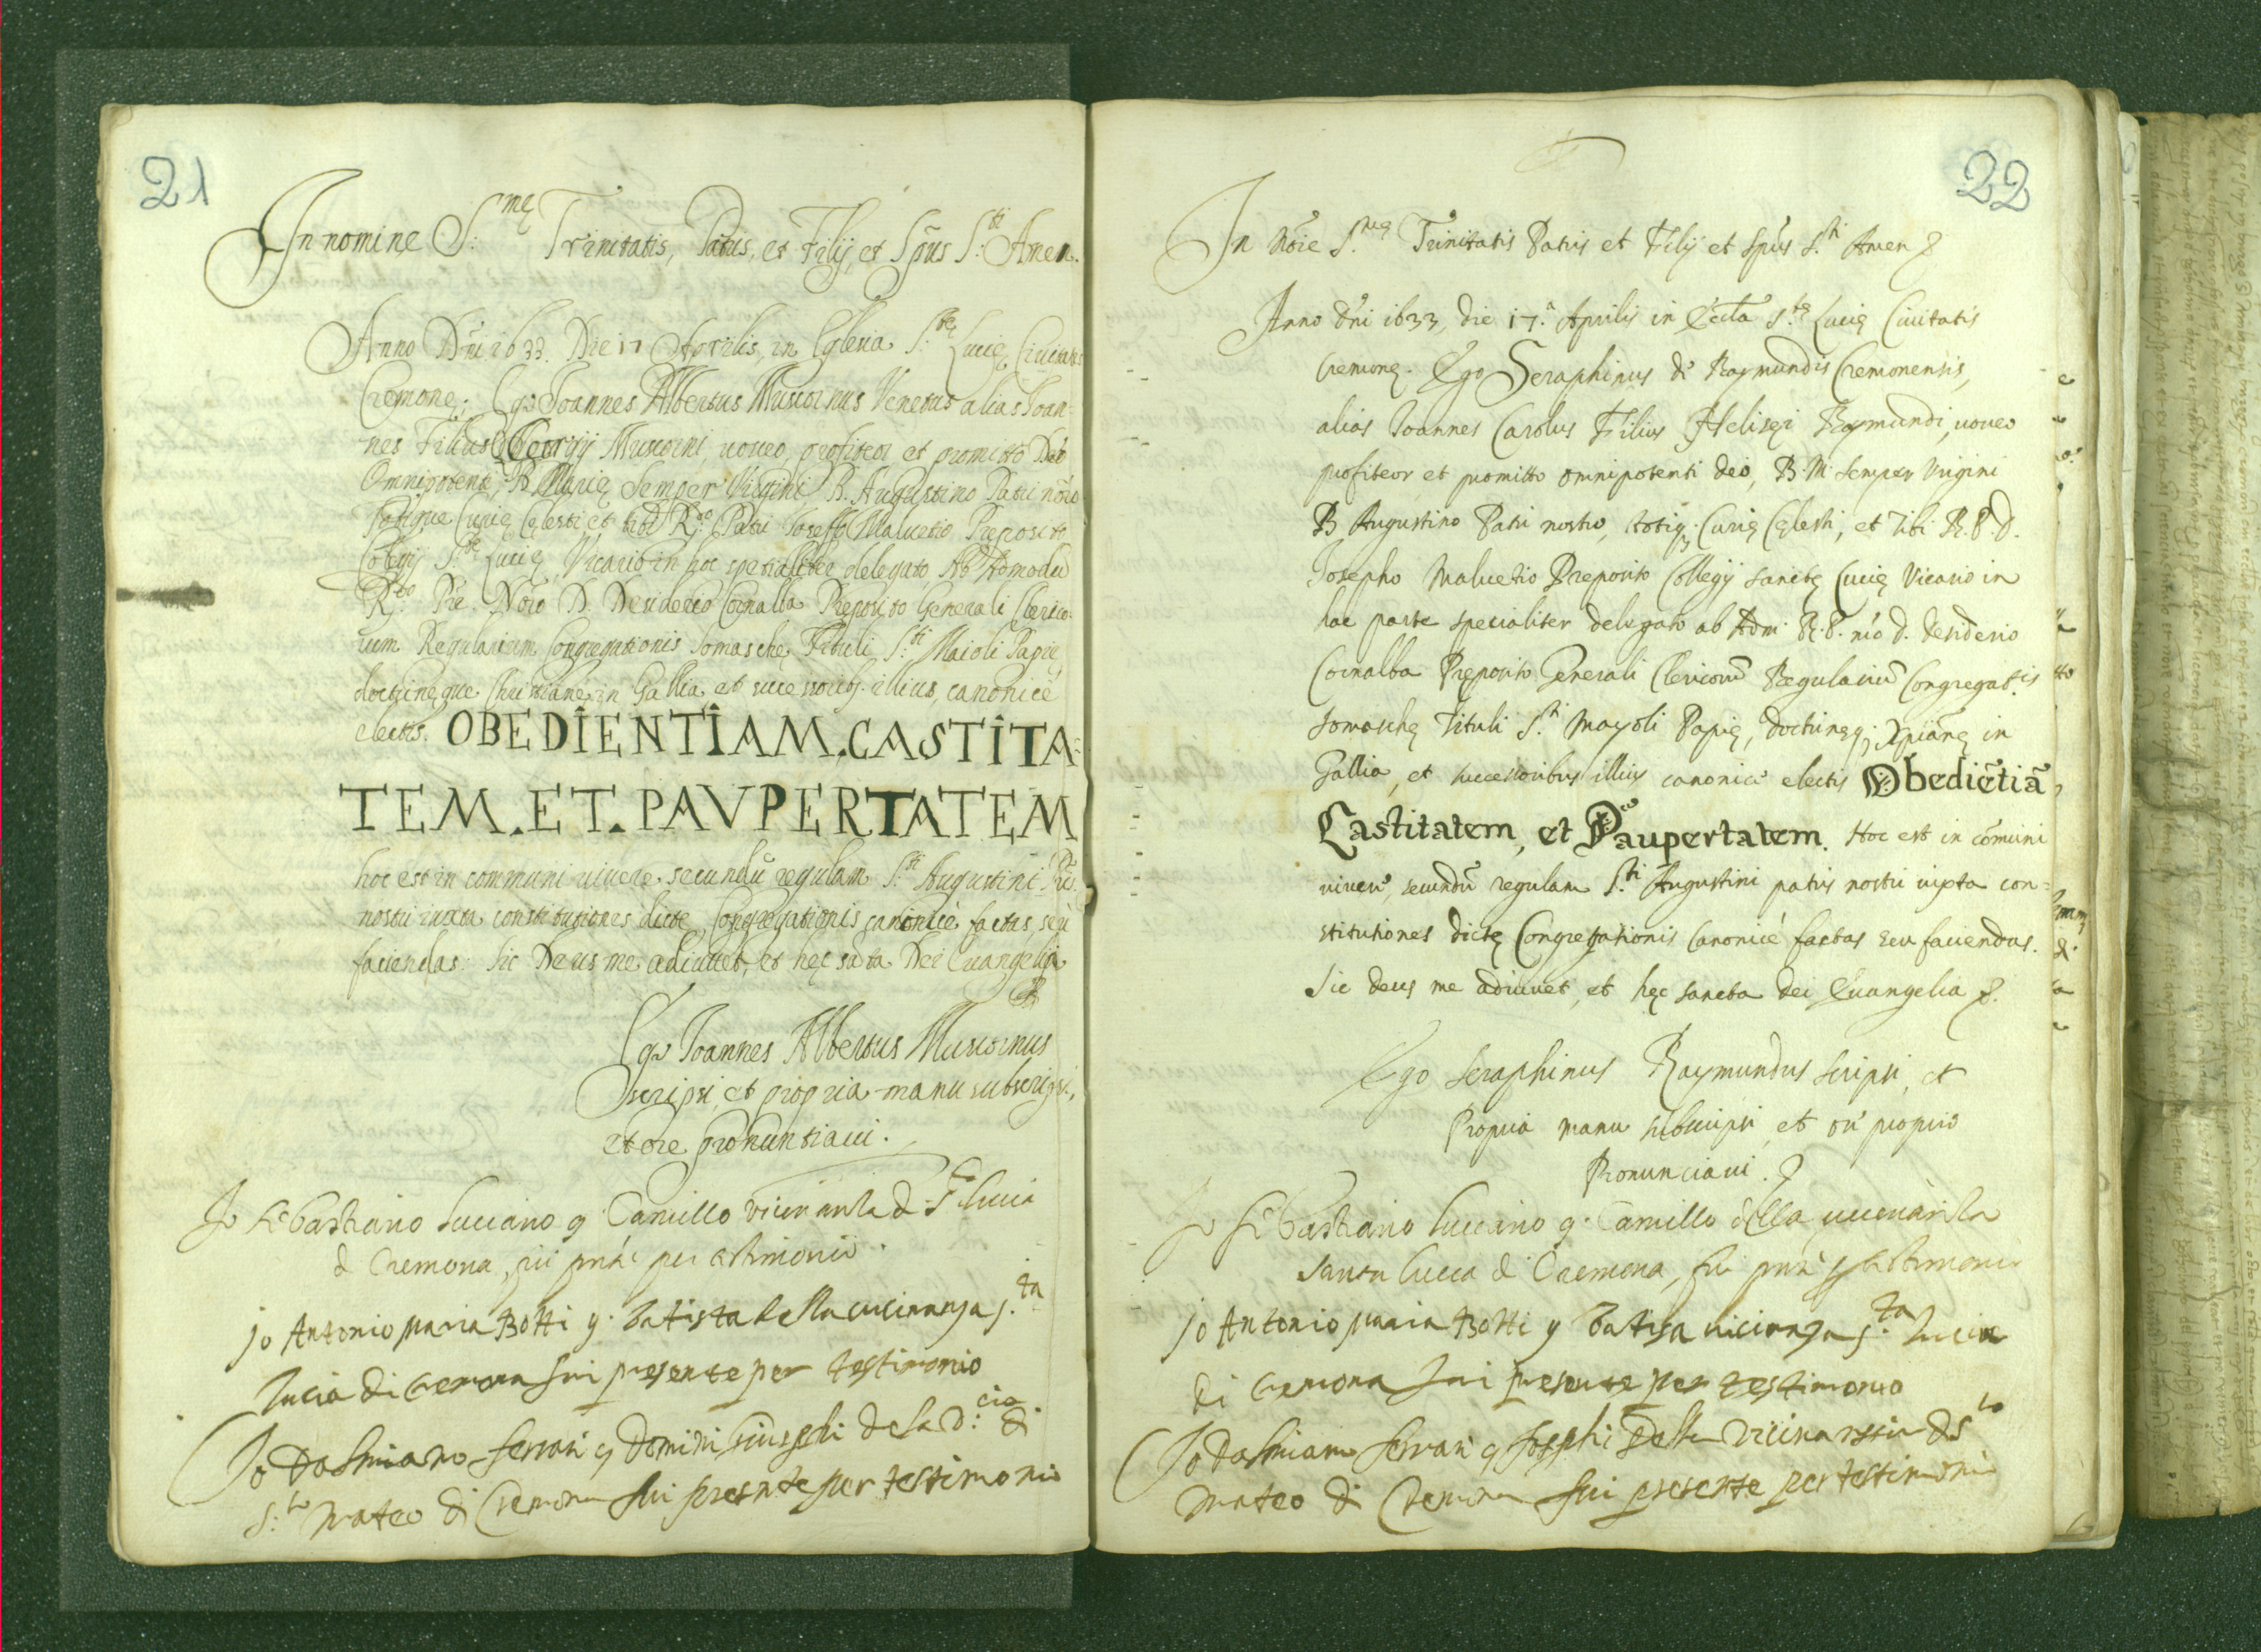 21
In nomine S:mę Trinitatis, Patris, et Filij, et Spũs S:ti Amen.
Anno Dñi 1633. Die 17 Aprilis, in Eglesia S:tę Lucię Civitatis
Cremonę; Ego Joannes Albertus Muscornus Venetus alias Joan-
nes Filius Georgij Muscorni, uoueo, profiteor et promitto Deo
Omnipotenti, B. Marię Semper Virgini B. Augustino Patri nõro
Totique Curię Celesti et tibi R.do Patri Joseffo Malvetio Preposito
Colegij S.tę Lucię, Vicario in hoc spetialiter delegato, Ab Admodũ
R.do Pre. Nõro D. Desiderio Cornalba Preposito Generali Clerico-
rum Regularium Congregationis Somaschę Tituli S:ti Maioli Papię,
doctrinęque Christianę in Gallia et successorib; illius, canonicè
electis. OBEDIENTIAM. CASTITA-
TEM. ET. PAVPERTATEM
hoc est in communi uiuere, secundũ regulam S:ti Augustini Prĩs
nostri iuxta constitutiones dicte Congregationis canonicè factas, seù
faciendas: sic Deus me adiuuet, et hęc sãta Dei Euangelia
Ego Joannes Albertus Muscornus
scripsi, et propria manu subscripsi,
et ore pronuntiaui.
Jo Sebastiano Luciano q. Camillo vicinanza d S.ta Lucia
d Cremona, fui pnte per testimonio.
jo Antonio maria Botti q. batista della vicinanza s.ta
lucia di cremona fui presente per testimonio
Jo Damiano Ferrari q Domini Giusephi dela v:cia di
S:to mateo di Cremona fui presente per testimonio
22
In nõie S.mę Trinitatis Patris et Filij et spũs S.ti Amen
Anno dñi 1633, die 17.a Aprilis in Eccla S.tę Lucię Ciuitatis
Cremonę. Ego Seraphinus de Raymundis Cremonensis,
alias Joannes Carolus Filius Helisęi Raymundi, uoueo
profiteor et promitto omnipotenti deo, B. M. semper Virgini
B Augustino Patri nostro, totiq; Curię Cęlesti, et Tibi R. P. D.
Josepho Malvetio Pręposito Collegij sanctę Lucię Vicario in
hac parte specialiter delegato ab Adm. R. P. nrõ d. desiderio
Cornalba Pręposito Generali Clericorũ Regulariũ Congregat.is
somaschę Tituli S.ti Mayoli Papię, doctrinęq; Xpianę in
Gallia, et successoribus illius canonicè electis Obediẽtiã,
Castitatem, et Paupertatem. Hoc est in cõmuni
uiuere, secundũ regulam S.ti Augustini patris nostri iuxta con-
stitutiones dictę Congregationis Canonicè factas seu faciendas.
Sic deus me adiuuet, et hęc sancta dei Euangelia
Ego Seraphinus Raymundus scripsi, et
Propria manu subscripsi, et ore proprio
Pronunciaui.
Jo Sebastiano Lucciano q. Camillo della uicinanza
Santa Lucca d Cremona, fui pnte p testimonio
jo Antonio maria Botti q batista uicinanza s.ta lucia
di cremona fui presente per testimonio
Jo Damiano Ferrari q Josephi della vicinanza d S.to
mateo di Cremona fui presente per testimonio